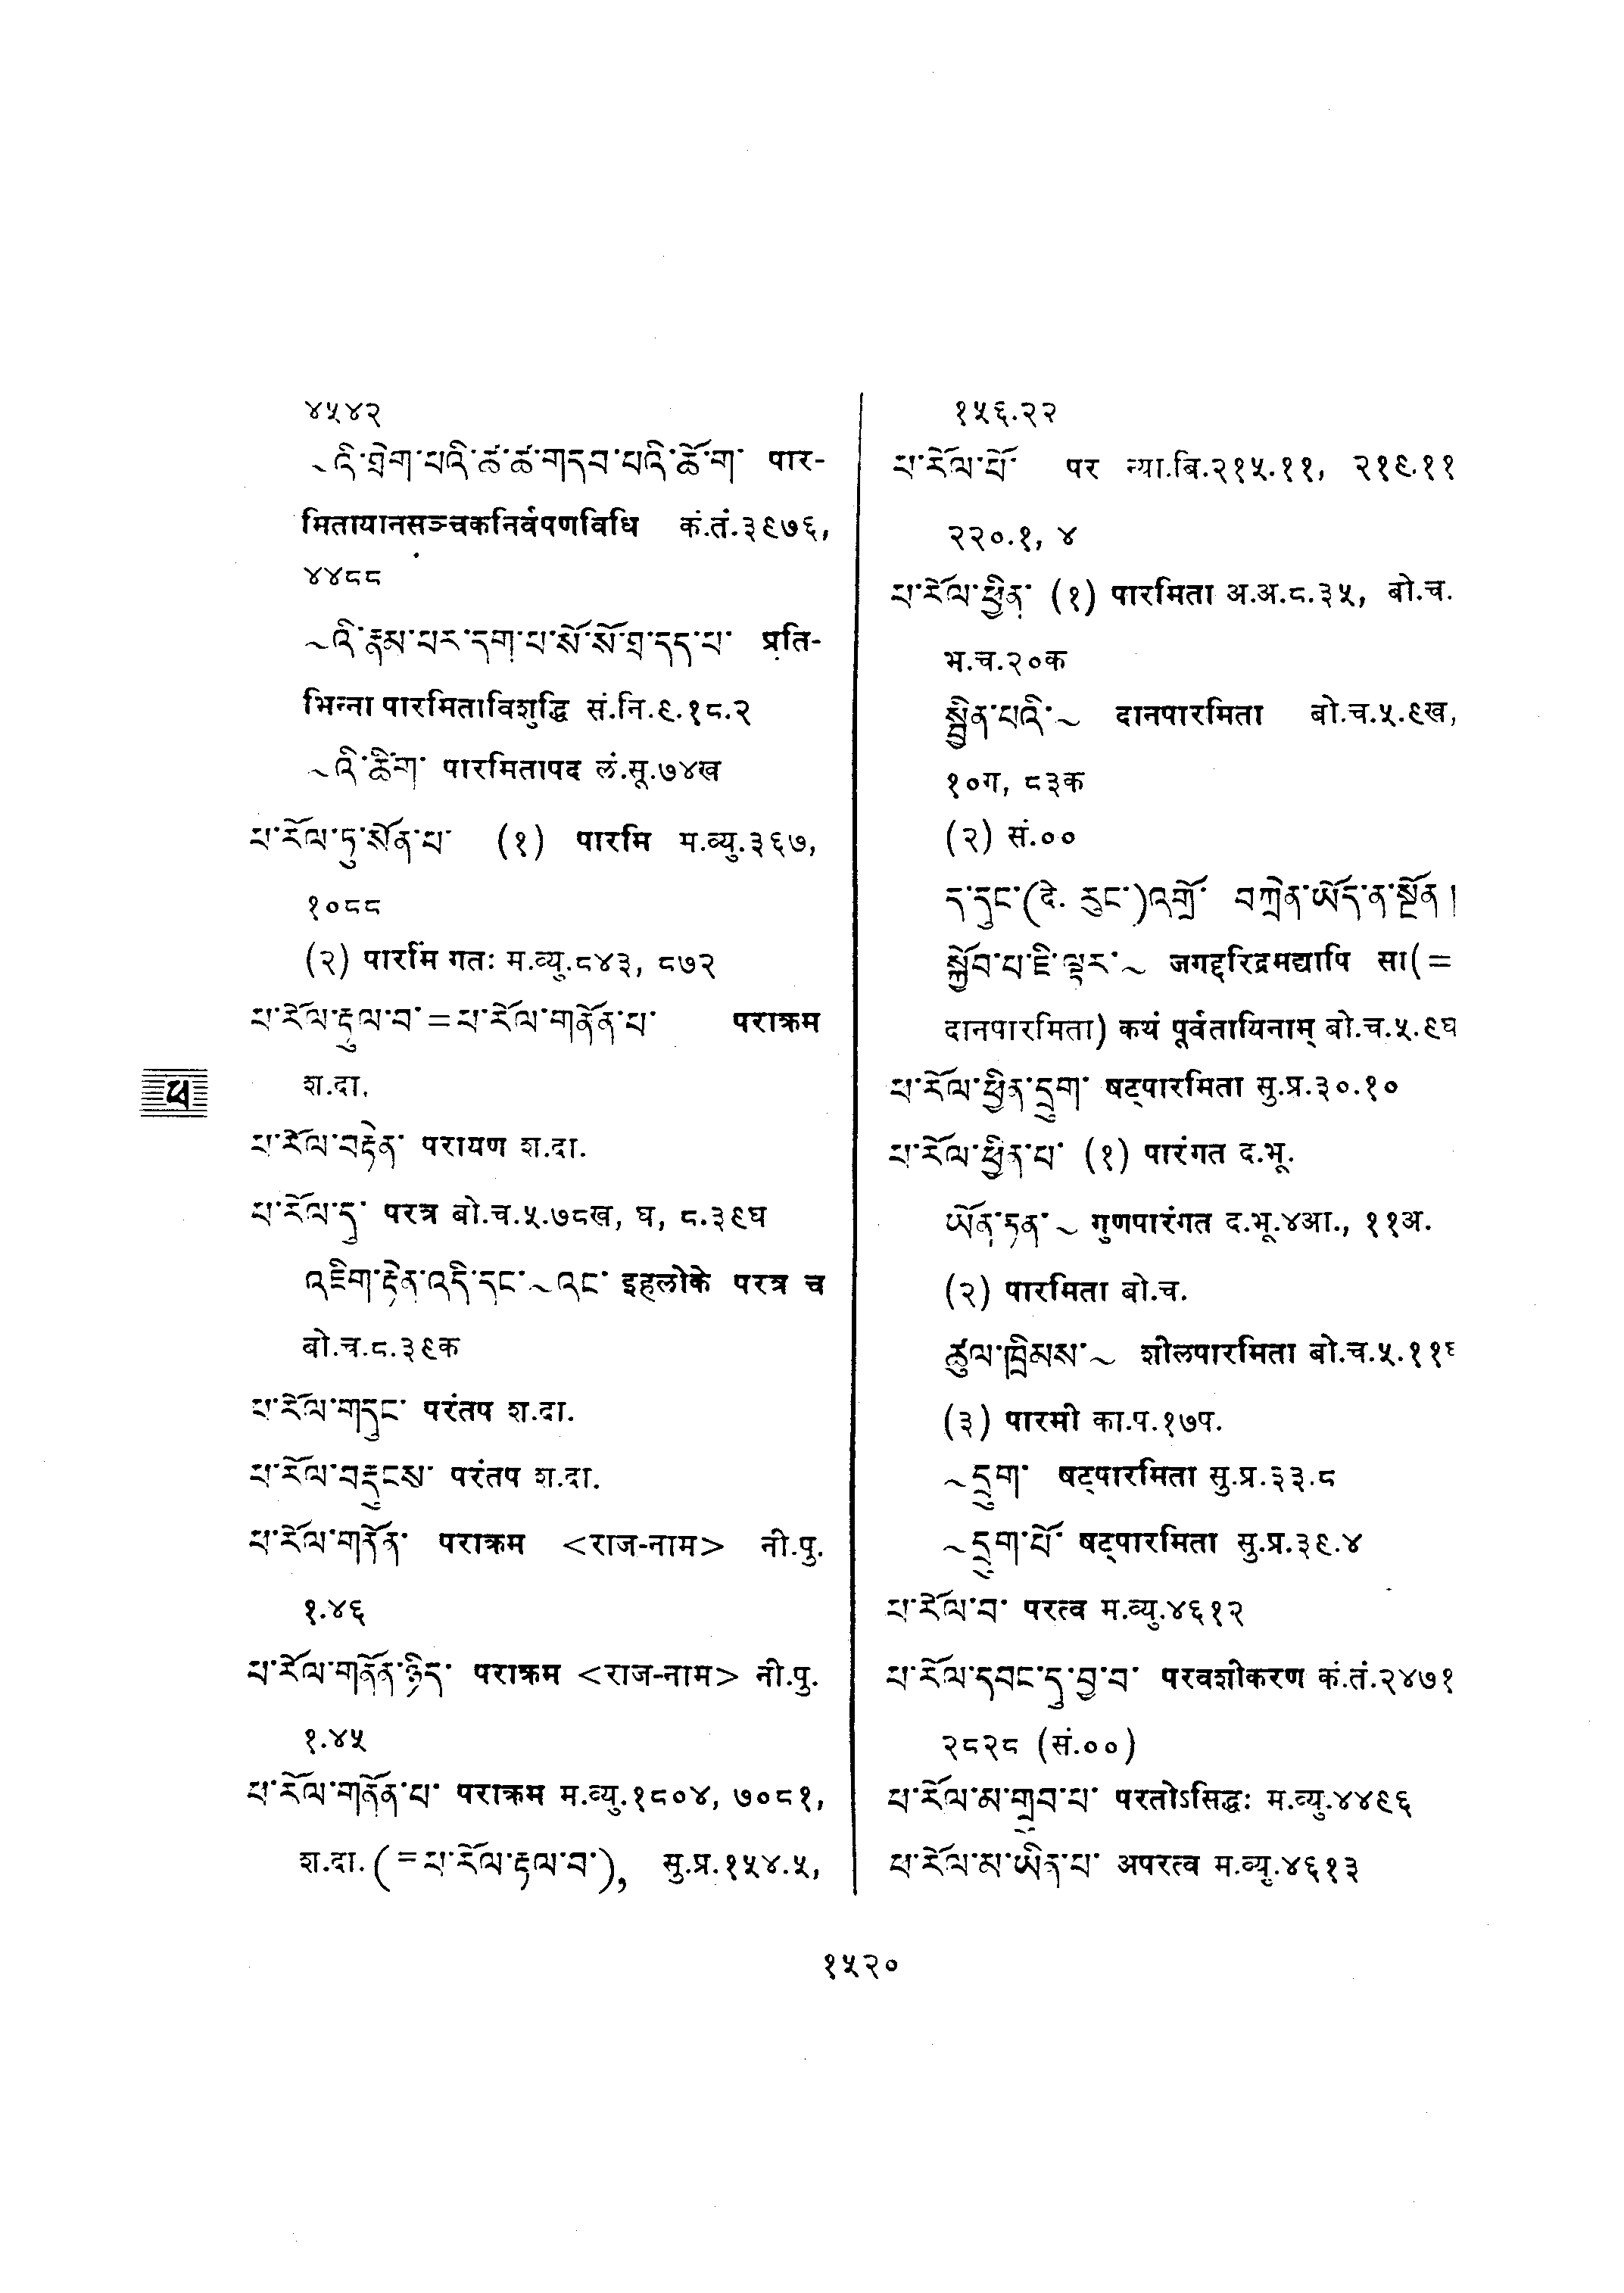 ४५४२
~འི་ཐེག་པའི་ཚ་ཚ་གདབ་པའི་ཆོ་ག་ पार-
मितायानसञ्चकनिर्वपणविधि कं.तं.३९७६,
४४८८
~འི་རྣམ་པར་དག་པ་སོ་སོ་ཐ་དད་པ་ प्रति-
भिन्ना पारमिताविशुद्धि सं.नि.९.१८.२
~འི་ཚིག་ पारमितापद लं.सू.७४ख
ཕ་རོལ་ཏུ་སོན་པ་ (१) पारमि म.व्यु.३६७,
१०८८
(२) पारमिं गतः म.व्यु.८४३, ८७२
ཕ་རོལ་རྟུལ་བ་=ཕ་རོལ་གནོན་པ་ पराक्रम
श.दा.
ཕ
ཕ་རོལ་བརྟེན་ परायण श.दा.
ཕ་རོལ་དུ་ परत्र बो.च.५.७८ख, घ, ८.३९घ
འཇིག་རྟེན་འདི་དང་~འང་ इहलोके परत्र च
बो.च.८.३९क
ཕ་རོལ་གདུང་ परंतप श.दा.
ཕ་རོལ་བརྡུངས་ परंतप श.दा.
ཕ་རོལ་གནོན་ पराक्रम <राज-नाम> नी.पु.
१.४६
ཕ་རོལ་གནོན་ཉིད་ पराक्रम <राज-नाम> नी.पु.
१.४५
ཕ་རོལ་གནོན་པ་ पराक्रम म.व्यु.१८०४, ७०८१,
श.दा. (=ཕ་རོལ་རྟལ་བ་), सु.प्र.१५४.५,
१५६.२२
ཕ་རོལ་པོ་ पर न्या.बि.२१५.११, २१९.११
२२०.१, ४
ཕ་རོལ་ཕྱིན་ (१) पारमिता अ.अ.८.३५, बो.च.
भ.च.२०क
སྦྱིན་པའི་~ दानपारमिता बो.च.५.९ख,
१०ग, ८३क
(२) सं.००
ད་དུང་(दे. རུང་)འགྲོ་ བཀྲེན་ཡོད་ན་སྔོན།
སྐྱོབ་པ་ཇི་ལྟར་~ जगद्दरिद्रमद्यापि सा(=
दानपारमिता) कथं पूर्वतायिनाम् बो.च.५.९घ
ཕ་རོལ་ཕྱིན་དྲུག་ षट्पारमिता सु.प्र.३०.१०
ཕ་རོལ་ཕྱིན་པ་ (१) पारंगत द.भू.
ཡོན་ཏན་~ गुणपारंगत द.भू.४आ., ११अ.
(२) पारमिता बो.च.
ཚུལ་ཁྲིམས་~ शीलपारमिता बो.च.५.११घ
(३) पारमी का.प.१७प.
~དྲུག་ षट्पारमिता सु.प्र.३३.८
~དྲུག་པོ་ षट्पारमिता सु.प्र.३९.४
ཕ་རོལ་བ་ परत्व म.व्यु.४६१२
ཕ་རོལ་དབང་དུ་བྱ་བ་ परवशीकरण कं.तं.२४७१
२८२८ (सं.००)
ཕ་རོལ་མ་གྲུབ་པ་ परतोऽसिद्धः म.व्यु.४४९६
ཕ་རོལ་མ་ཡིན་པ་ अपरत्व म.व्यु.४६१३
१५२०